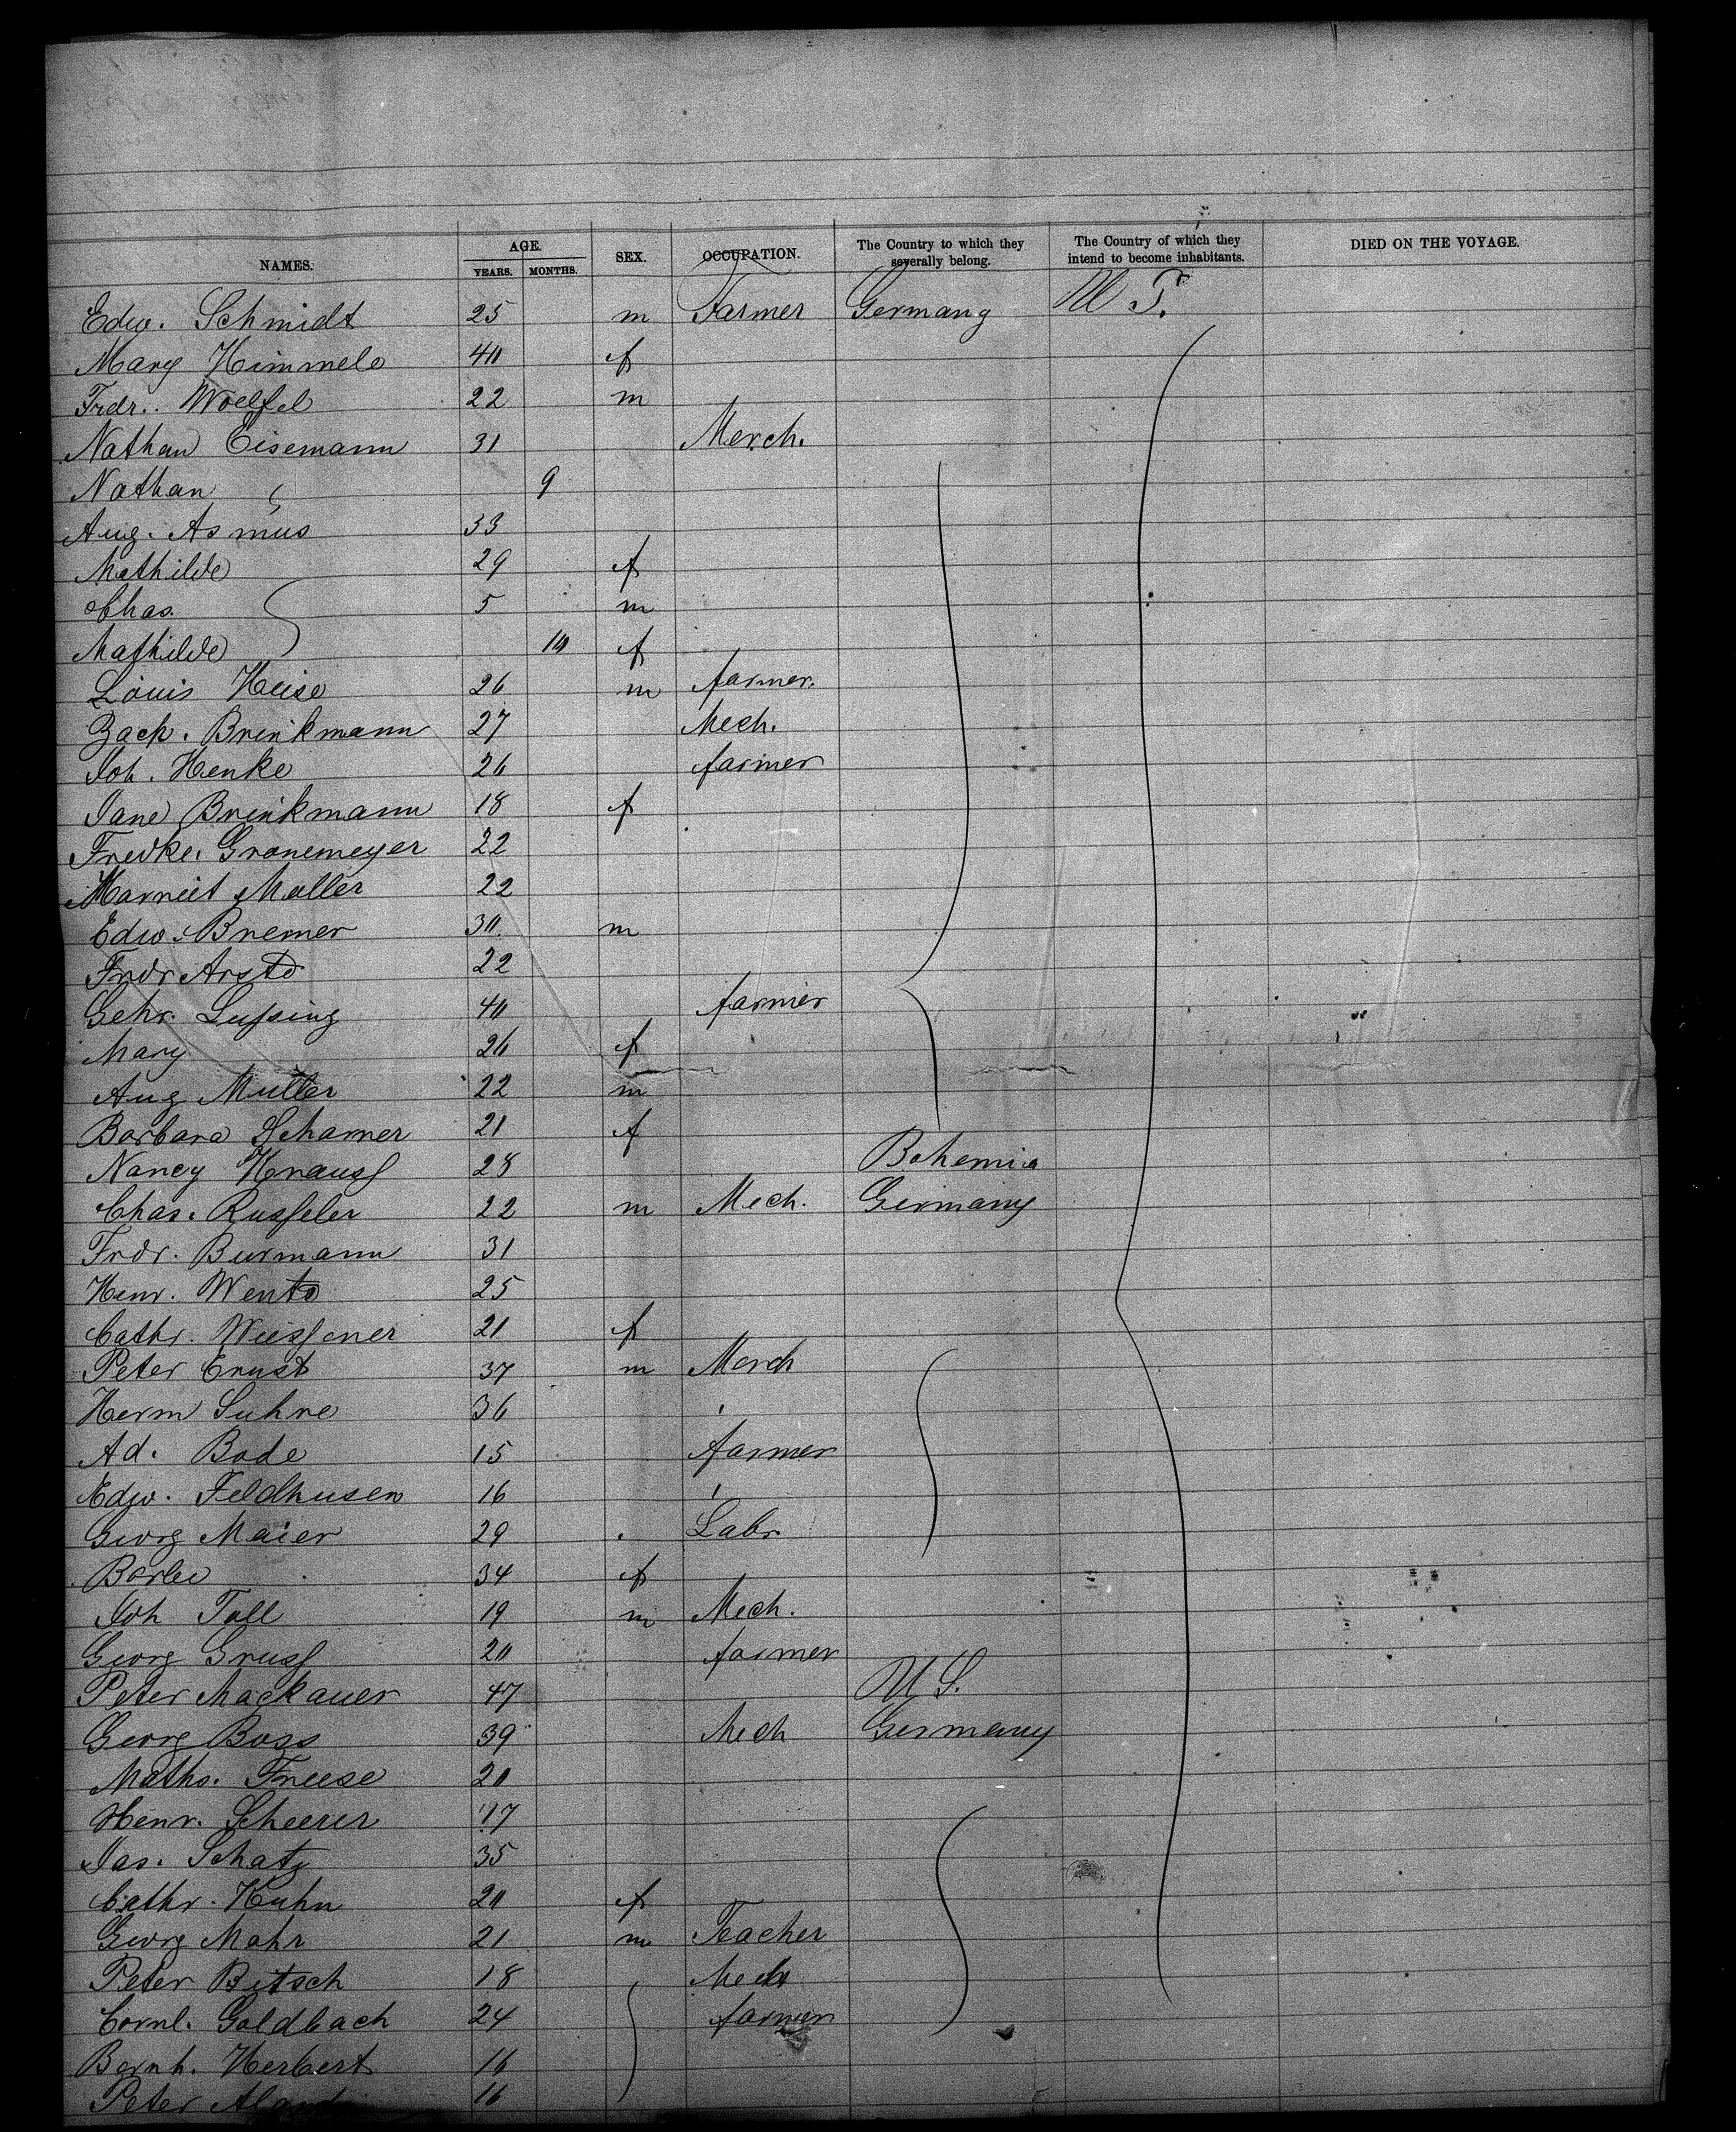 NAMES. AGE. YEARS. MONTHS. SEX. OCCUPATION. The Country to which they severally belong. The Country of which they intend to become inhabitants. DIED ON THE VOYAGE.
Edw. Schmidt 25 m Farmer Germany U S.
Mary Himmele 40 f
Fredr. Woelfel 22 m
Nathan Eisemann 31 Merch.
Nathan 9
Aug. Asmus 33
Mathilde 29 f
Chas. 5 m
Mathilde 10 f
Louis Heise 26 m farmer.
Zach. Brinkmann 27 Mech.
Joh. Henke 26 farmer
Jane Brinkmann 18 f
Fredke. Gronemeyer 22
Harriet Moller 22
Edw. Bremer 30 m
Fredr Arstd 22
Gehr. Lussing 40 farmer
Mary 26 f
Aug Muller 22 m
Barbara Scharner 21 f
Nancy Krauss 28 Bohemia
Chas. Russeler 22 m Mech. Germany
Fredr. Burmann 31
Henr. Wentd 25
Cathr. Wiessner 21 f
Peter Ernst 37 m Merch
Herm Suhre 36 "
Ad. Bode 15 farmer
Edw. Feldhusen 16 "
Georg Maier 29 Labr.
34 f
Joh Toll 19 m Mech.
Georg Gruss 20 farmer
Peter Mackauer 47 U S.
Georg Boss 39 Mech Germany
Maths. Freese 20
Henr. Scheerer 17
Jas. Schatz 35
Cathr. Kuhn 20 f
Georg Mohr 21 m Teacher
Peter Bitsch 18 Mech
Cornl. Goldbach 24 farmer
Bernh. Herbert 16
Peter 16